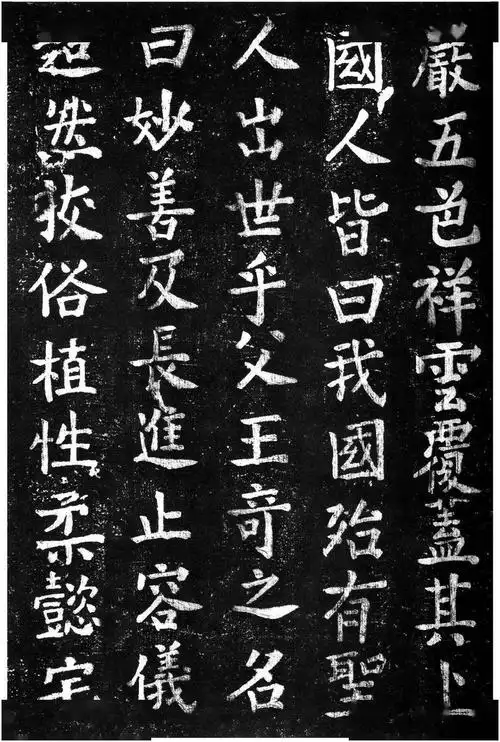 嚴五色祥雲覆蓋其上
國人皆曰我國殆有聖
人出世乎父王奇之名
曰妙善及長進止容儀
超然拔俗植性柔懿